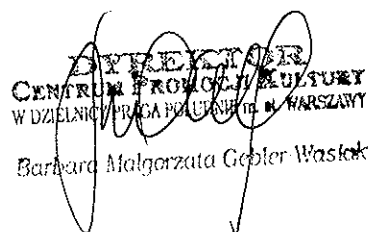 DYREKTOR
CENTRUM PROMOCJI KULTURY
W DZIELNICY PRAGA POŁUDNIE m. st. WARSZAWY
Barbara Małgorzata Gębler-Wasiak